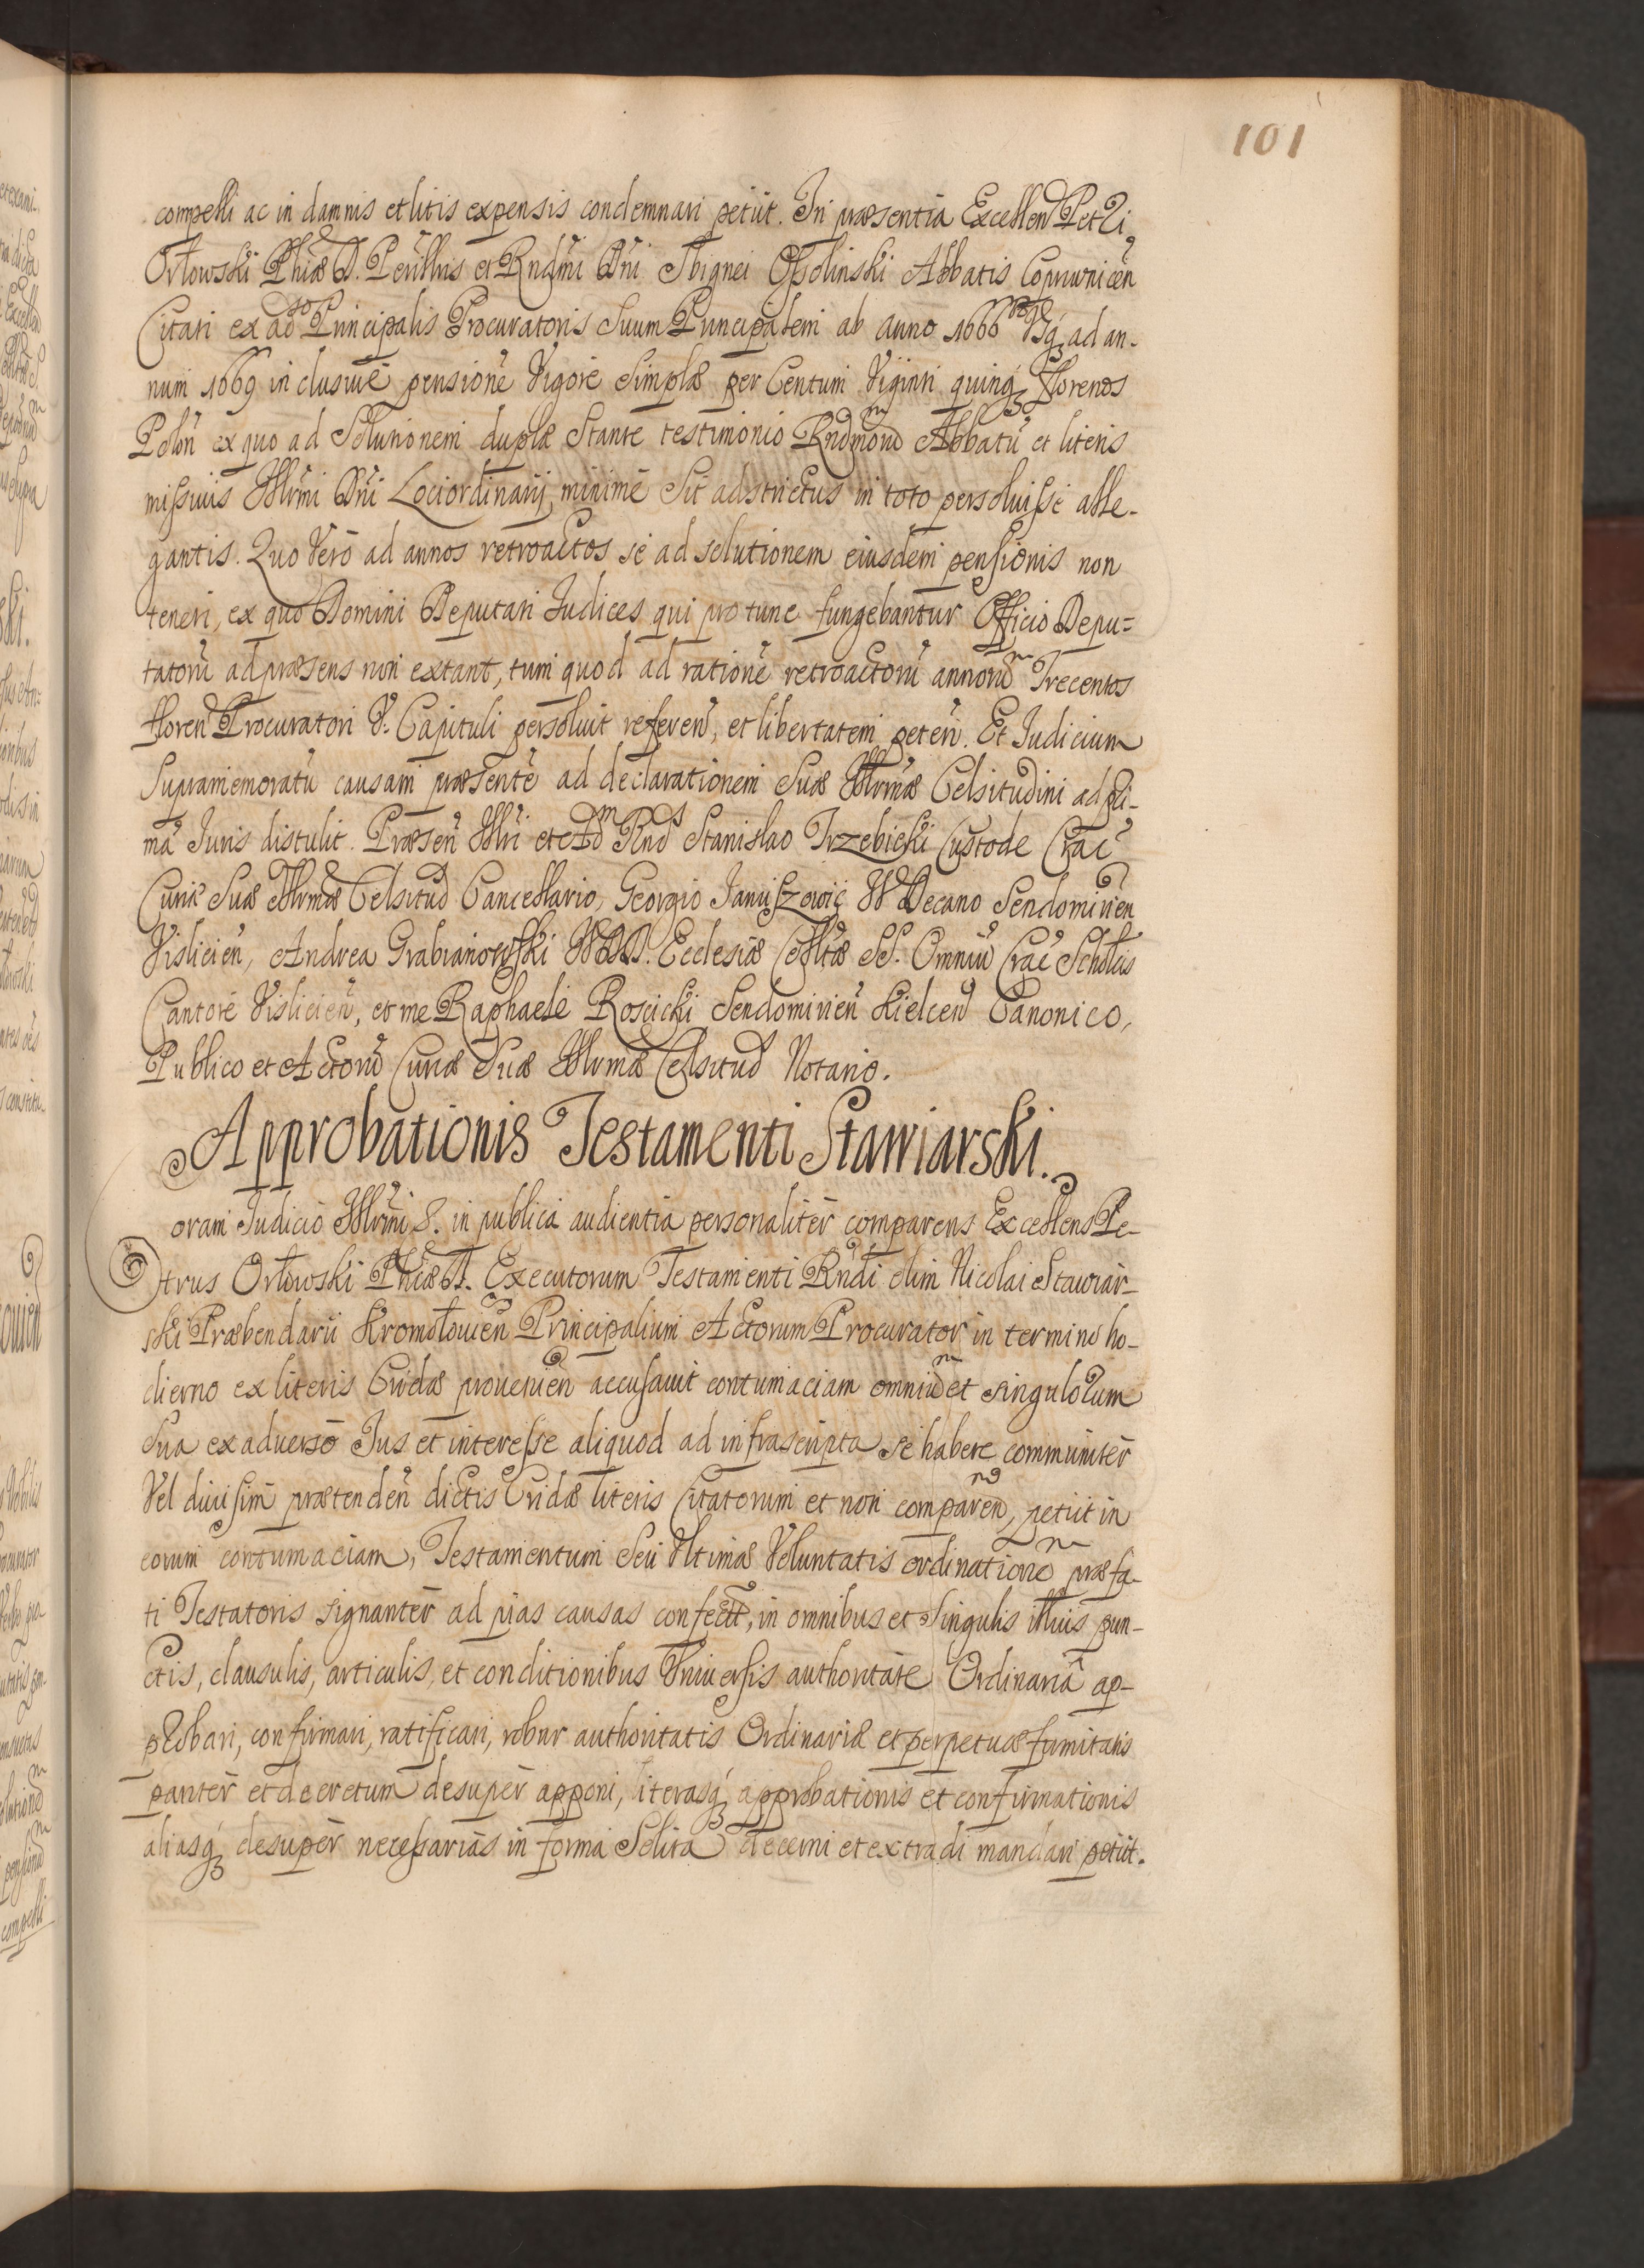 101
compelli ac in damnis et litis expensis condemnari petiit. In præsentia Excellen Petri
Orłowski Phiæ D. Perillris et Rndmi Dni Sbignei Ossolinski Abbatis Coprivnicen
Citati ex ad Principalis Procuratoris Suum Principalem ab anno 1666 Usq ad an-
num 1669 inclusive pensione Vigore Simplæ per Centum Viginti quinq florenos
Polon ex quo ad Solutionem duplæ Stante testimonio Rndmoru Abbatu et literis
missivis Illrmi Dni Lociordinarij minime Sit adstrictus in toto persoluisse alle-
gantis. Quo Vero ad annos retroactos se ad solutionem eiusdem pensionis non
teneri, ex quo Domini Deputati Iudices qui pro tunc fungebantur Officio Depu-
tatoru ad præsens non extant, tum quod ad ratione retroactoru annoru Trecentos
floren Procuratori V. Capituli persoluit referen, et libertatem peten. Et Iudicium
Supramemoratu causam præsente ad declarationem Suæ Illrmæ Celsitudini ad pri-
ma Iuris distulit. Præsen Illri et Rnd Stanislao Trzebicki Custode Crac
Curiæ Suæ Illrmæ Celsitud Cancellario, Georgio Januszowic Decano Sendomirien
Vislicien, Andrea Grabianowski Ecclesiæ Colltæ SS. Omniu Crac Scholas
Cantore Vislicien, et me Raphaele Roscicki Sendomirien Kielcen Canonico,
Publico et Actoru Curiæ Suæ Illrmæ Celsitud Notario.
Approbationis Testamenti Stawiarski.
Coram Iudicio Illrmi S. in publica audientia personaliter comparens Excellens Pe-
trus Orłowski Phiæ D. Executorum Testamenti Rndi olim Nicolai Stawiar-
ski Præbendarii Kromołowien Principalium Actorum Procurator in termino ho-
dierno ex literis Cridæ provenien accusavit contumaciam omniu et singulorum
Sua ex adverso Ius et interesse aliquod ad infrascripta se habere communiter
Vel divisim prætenden dictis Cridæ literis Citatorum et non comparen, petiit in
eorum contumaciam, Testamentum Seu Ultimæ Voluntatis ordinatione præfa-
ti Testatoris signanter ad pias causas confect, in omnibus et Singulis illius pun-
ctis, clausulis, articulis, et conditionibus Universis authoritate Ordinaria ap-
probari, confirmari, ratificari, robur authoritatis Ordinariæ et perpetuæ firmitatis
pariter et decretum desuper apponi, literasq approbationis et confirmationis
aliasq desuper necessarias in forma Solita decerni et extradi mandari petiit.